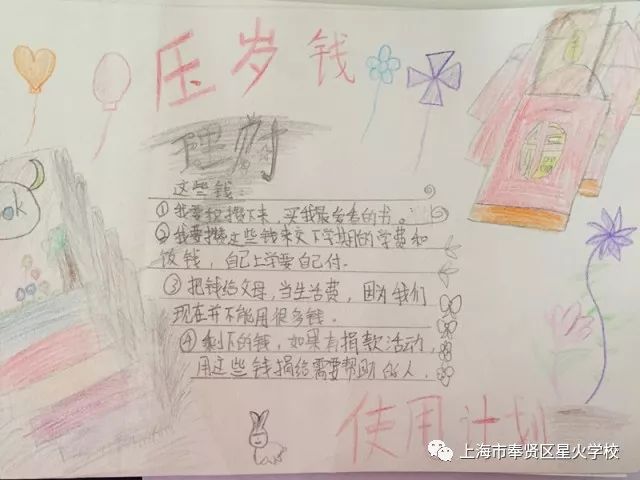 压岁钱
理财
这些钱：
①我要把攒下来，买我最爱看的书。
②我要攒这些钱来交下学期的学费和
饭钱，自己上学要自己付.
③把钱给父母，当生活费，因为我们
现在并不能用很多钱.
④剩下的钱，如果有捐款活动，
用这些钱捐给需要帮助的人.
使用计划
ok
上海市奉贤区星火学校